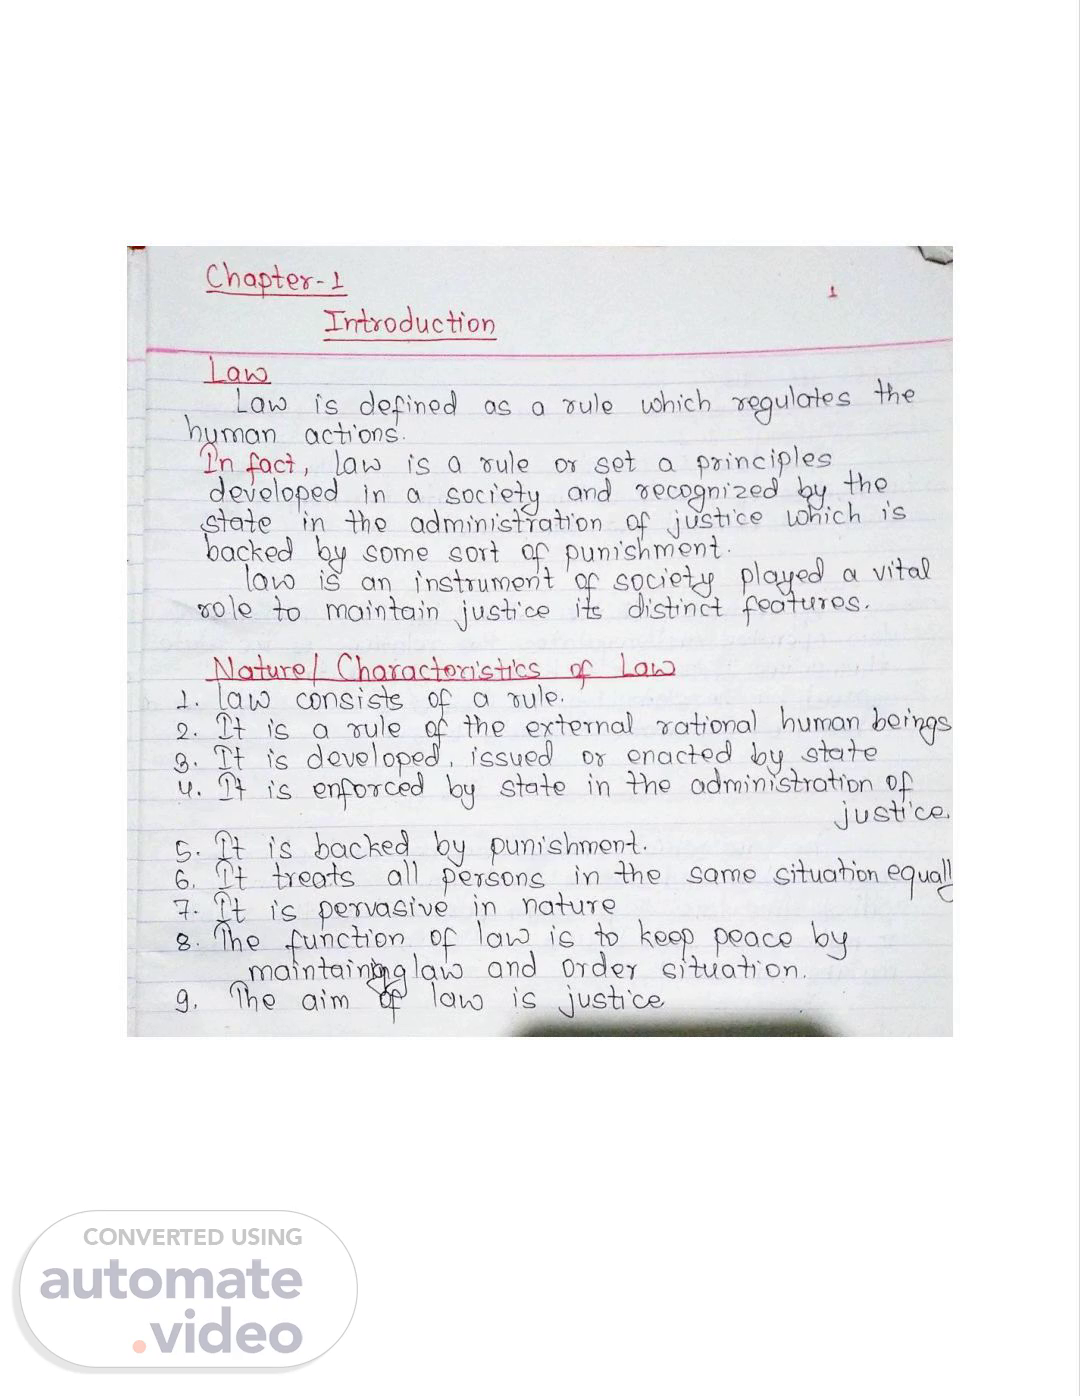 Chapter-1
1
Introduction
Law
Law is defined as a rule which regulates the
human actions.
In fact, law is a rule or set a principles
developed in a society and recognized by the
state in the administration of justice which is
backed by some sort of punishment.
law is an instrument of society played a vital
role to maintain justice its distinct features.
Nature/ Characteristics of Law
1. law consists of a rule.
2. It is a rule of the external rational human beings
3. It is developed, issued or enacted by state
4. It is enforced by state in the administration of
justice.
5. It is backed by punishment.
6. It treats all persons in the same situation equally
7. It is pervasive in nature
8. The function of law is to keep peace by
maintaining law and order situation.
9. The aim of law is justice
CONVERTED USING
automate
.video